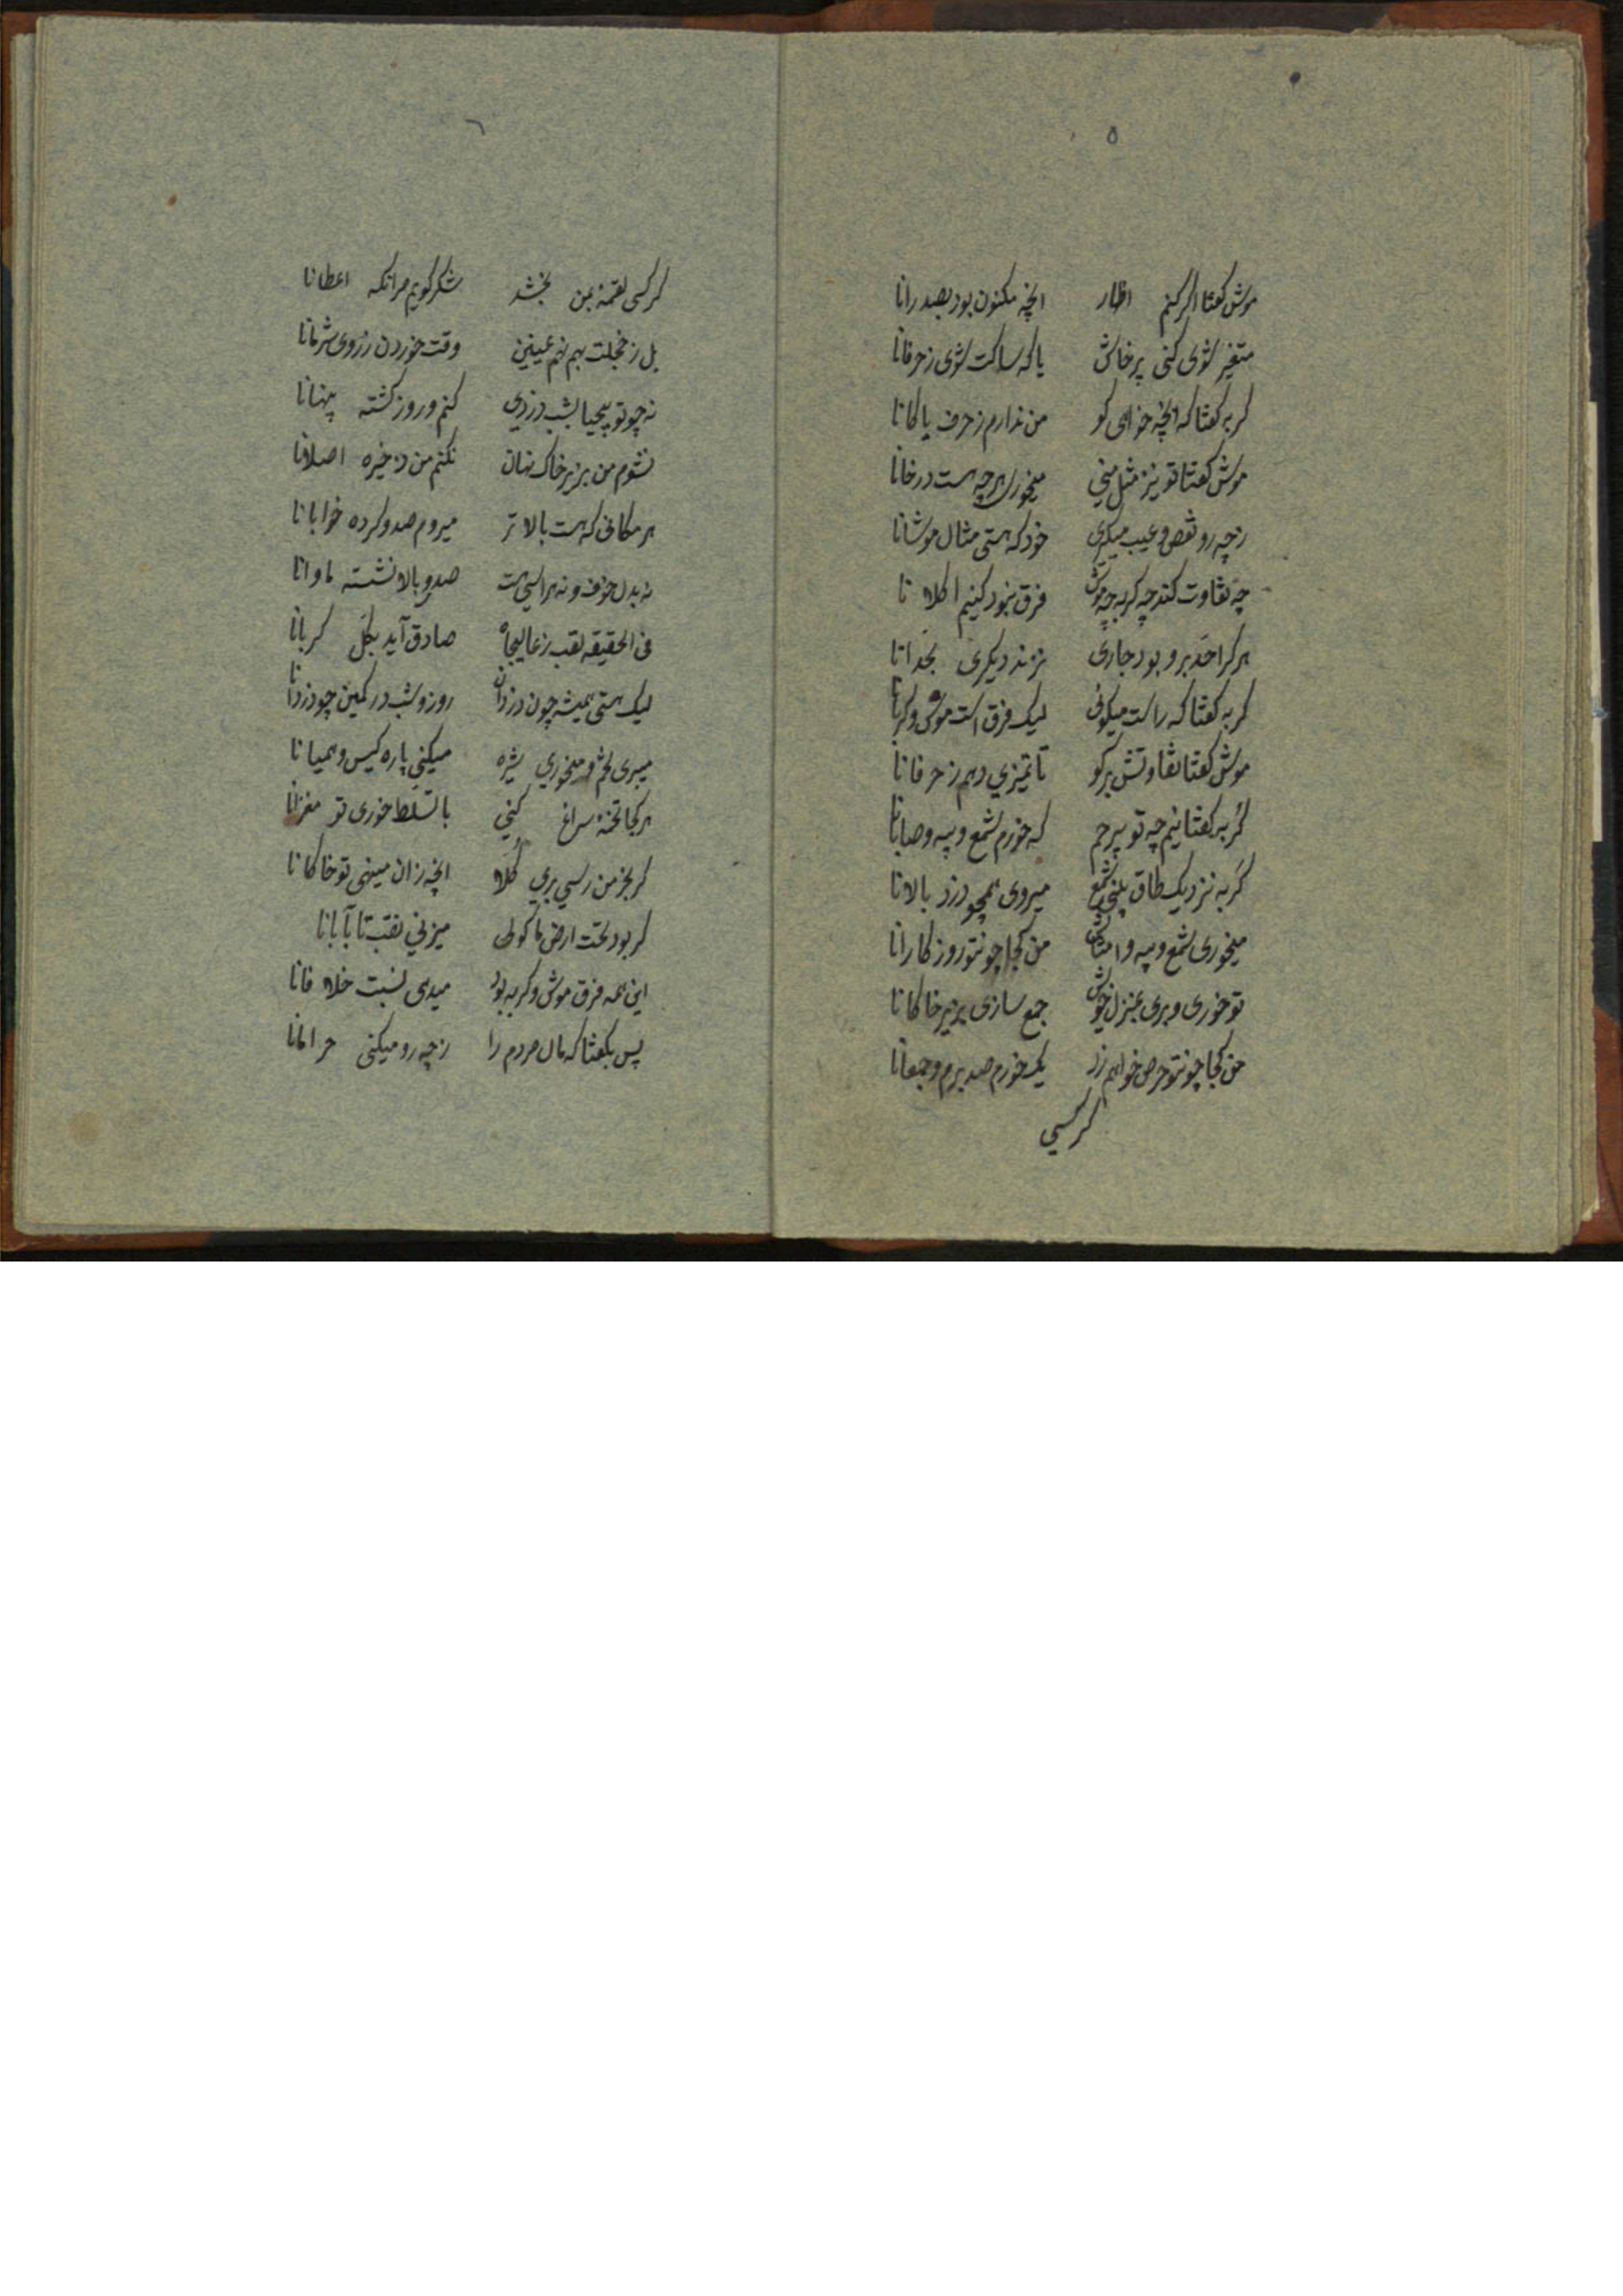 ۵
موش گفتا اگر کنم اظهار انچه مکنون بود بصدرانا
متغیر شوی کنی پرخاش یا که ساکت شوی زحرفانا
گربه گفتا که انچه خواهی گو من ندارم زحرف باکانا
موش گفتا تو نیز مثل منی میخوری هرچه هست در خانا
زچه رو نقص و عیب میگیری خود که هستی مثال موشانا
چه تفاوت کند چه گربه چه موش فرق نبود کنیم اکلانا
هرکرا حد برو بود جاری نزند دیگری بحدانا
گربه گفتا که راست میگوئی لیک فرق است موش و گربانا
موش گفتا تفاوتش برگو تا تمیزی دهم زحرفانا
گربه گفتا نیم چه تو بیرحم که خورم شمع و پیه و صابانا
گربه نزدیک طاق بینی شمع میروی همچو دزد بالانا
میخوری شمع و پیه و امثالش من کجا چونتو روزگارانا
تو خوری و بری بمنزل خویش جمع سازی بزیر خاکانا
من کجا چونتو حرص خواهم زد یک خورم صد برم وجمعانا
گر کسی
۶
گر کسی لقمهٔ بمن بخشد شکر گویم مرانکه اعطانا
بل زخجلت بهم نهم عینین وقت خوردن زروی شرمانا
نه چو تو بیحیا بشب دزدی کنم و روز گشته پنهانا
نشوم من بزیر خاک نهان نکنم من ذخیره اصلانا
هر مکانی که هست بالاتر میروم صد و کرده خوابانا
نه بدل خوف و نه هراسی هست صدر بالا نشسته ماوانا
فی الحقیقه لقب زعالیجاه صادق آید بکل گربانا
لیک هستی همیشه چون دزدان روز و شب در کمین چو دزدانا
میبری لحم و میخوری شیره میکنی پاره کیس و همیانا
هرکجا تخمهٔ سراغ کنی با تسلط خوری تو مغزانا
گر بجز من رسی بری کلا انچه زان مینهی تو خاکانا
گر بود تحت ارض ماکولی میزنی نقب تا بآبانا
این همه فرق موش و گربه بود میدهی نسبت خلافانا
پس بگفتا که مال مردم را زچه رو میکنی حرامانا